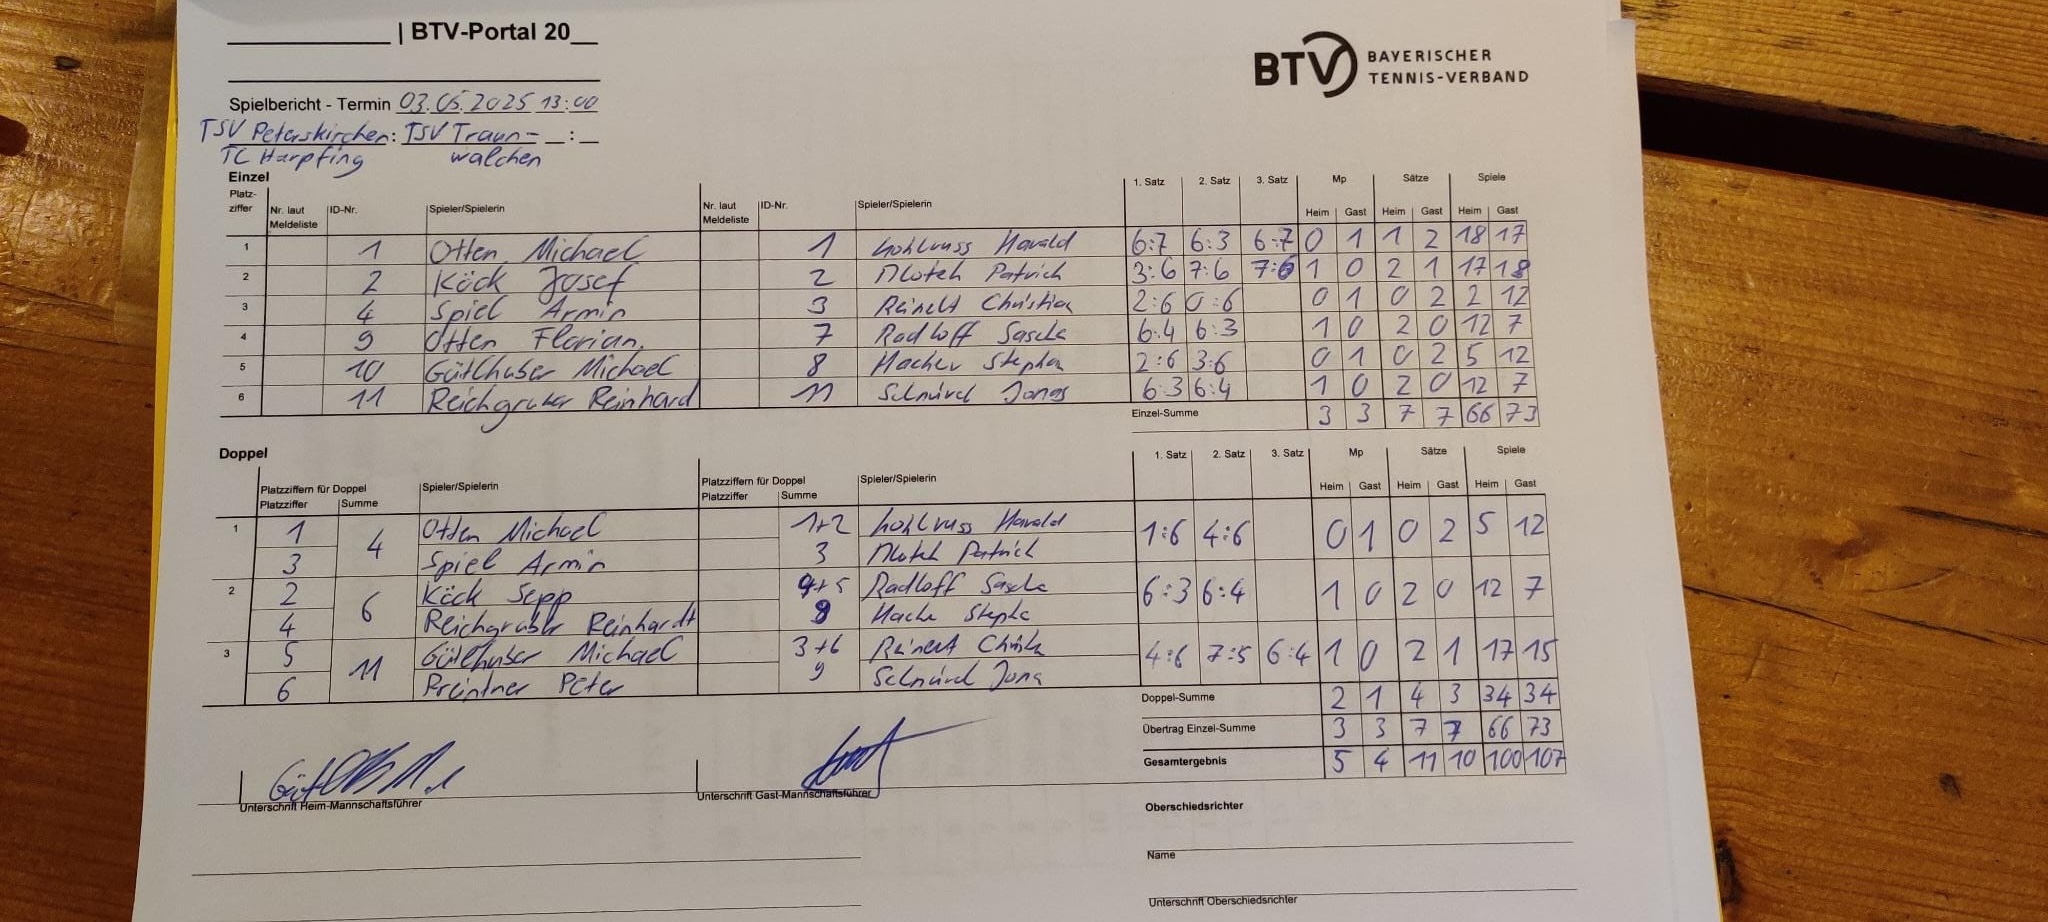 | BTV-Portal 20__
BTV BAYERISCHER TENNIS-VERBAND
Spielbericht - Termin 03.05.2025 13:00
TSV Peterskirchen: TSV Traun= __:__
TC Harpfing walchen
Einzel
Platz-ziffer Nr. laut Meldeliste ID-Nr. Spieler/Spielerin Nr. laut Meldeliste ID-Nr. Spieler/Spielerin 1. Satz 2. Satz 3. Satz Mp Sätze Spiele
Heim Gast Heim Gast Heim Gast
1 1 Otten Michael 1 Kohlruss Harald 6:7 6:3 6:7 0 1 1 2 18 17
2 2 Köck Josef 2 Patrick 3:6 7:6 7:6 1 0 2 1 17 18
3 4 Spiel Armin 3 Reinelt Christian 2:6 0:6 0 1 0 2 2 12
4 9 Otten Florian 7 Radloff Sascha 6:4 6:3 1 0 2 0 12 7
5 10 Gütlhuber Michael 8 Hacher Stephan 2:6 3:6 0 1 0 2 5 12
6 11 Reichgruber Reinhard 11 Schnürch Jonas 6:3 6:4 1 0 2 0 12 7
Einzel-Summe 3 3 7 7 66 73
Doppel
Platzziffern für Doppel Spieler/Spielerin Platzziffern für Doppel Spieler/Spielerin 1. Satz 2. Satz 3. Satz Mp Sätze Spiele
Platzziffer Summe Platzziffer Summe Heim Gast Heim Gast Heim Gast
1 1 4 Otten Michael 1+2 Kohlruss Harald 1:6 4:6 0 1 0 2 5 12
3 Spiel Armin 3 Patrick
2 2 6 Köck Sepp 4+5 Radloff Sascha 6:3 6:4 1 0 2 0 12 7
4 Reichgruber Reinhardt 9 Hache Stepha
3 5 11 Gütlhuber Michael 3+6 Reinert 4:6 7:5 6:4 1 0 2 1 17 15
6 Preintner Peter 9 Schnürch Jona
Doppel-Summe 2 1 4 3 34 34
Übertrag Einzel-Summe 3 3 7 7 66 73
Gesamtergebnis 5 4 11 10 100 107
Unterschrift Heim-Mannschaftsführer Unterschrift Gast-Mannschaftsführer
Oberschiedsrichter
Name
Unterschrift Oberschiedsrichter